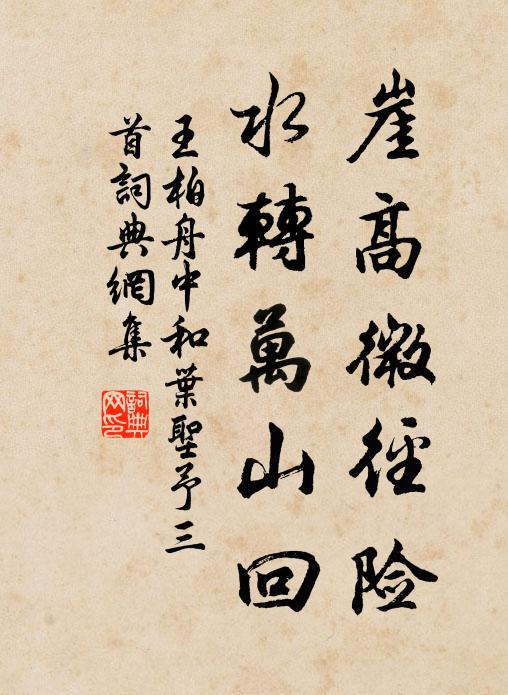 崖高微徑险
水轉萬山回
王柏舟中和葉聖予三
首詞典網集
詞典
网印